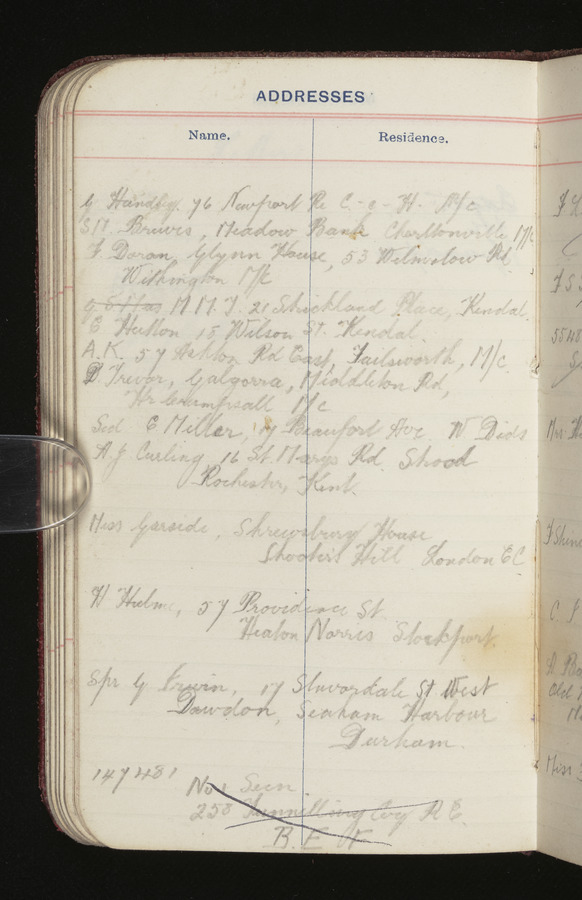 ADDRESSES
Name. Residence.
G Handley. 76 Newport Rd C-c-H. M/c
S M. Brewis, Meadow Bank Charltonville M/c
F Doran, Glynn House, 53 Wilmslow Rd,
Withington M/c
M M. J. 21 Strickland Place, Kendal.
E Hutton 15 Wilson St. Kendal.
A.K. 57 Ashton Rd East, Failsworth, M/c.
D. Trevor, Galgorra, Middleton Rd,
Hr Crumpsall M/c
E Miller, 17 Beaufort Ave. W Dids
A J Curling 16 St. Marys Rd. Strood
Rochester, Kent.
Miss Garside, Shrewsbury House
Shooters Hill London EC
H Hulme, 57 Providence St
Heaton Norris Stockport.
Spr G Irwin, 17 Stavordale St West
Dawdon, Seaham Harbour
Durham.
147481
No 1 Secn.
250 Tunnelling Coy R E.
B. E F